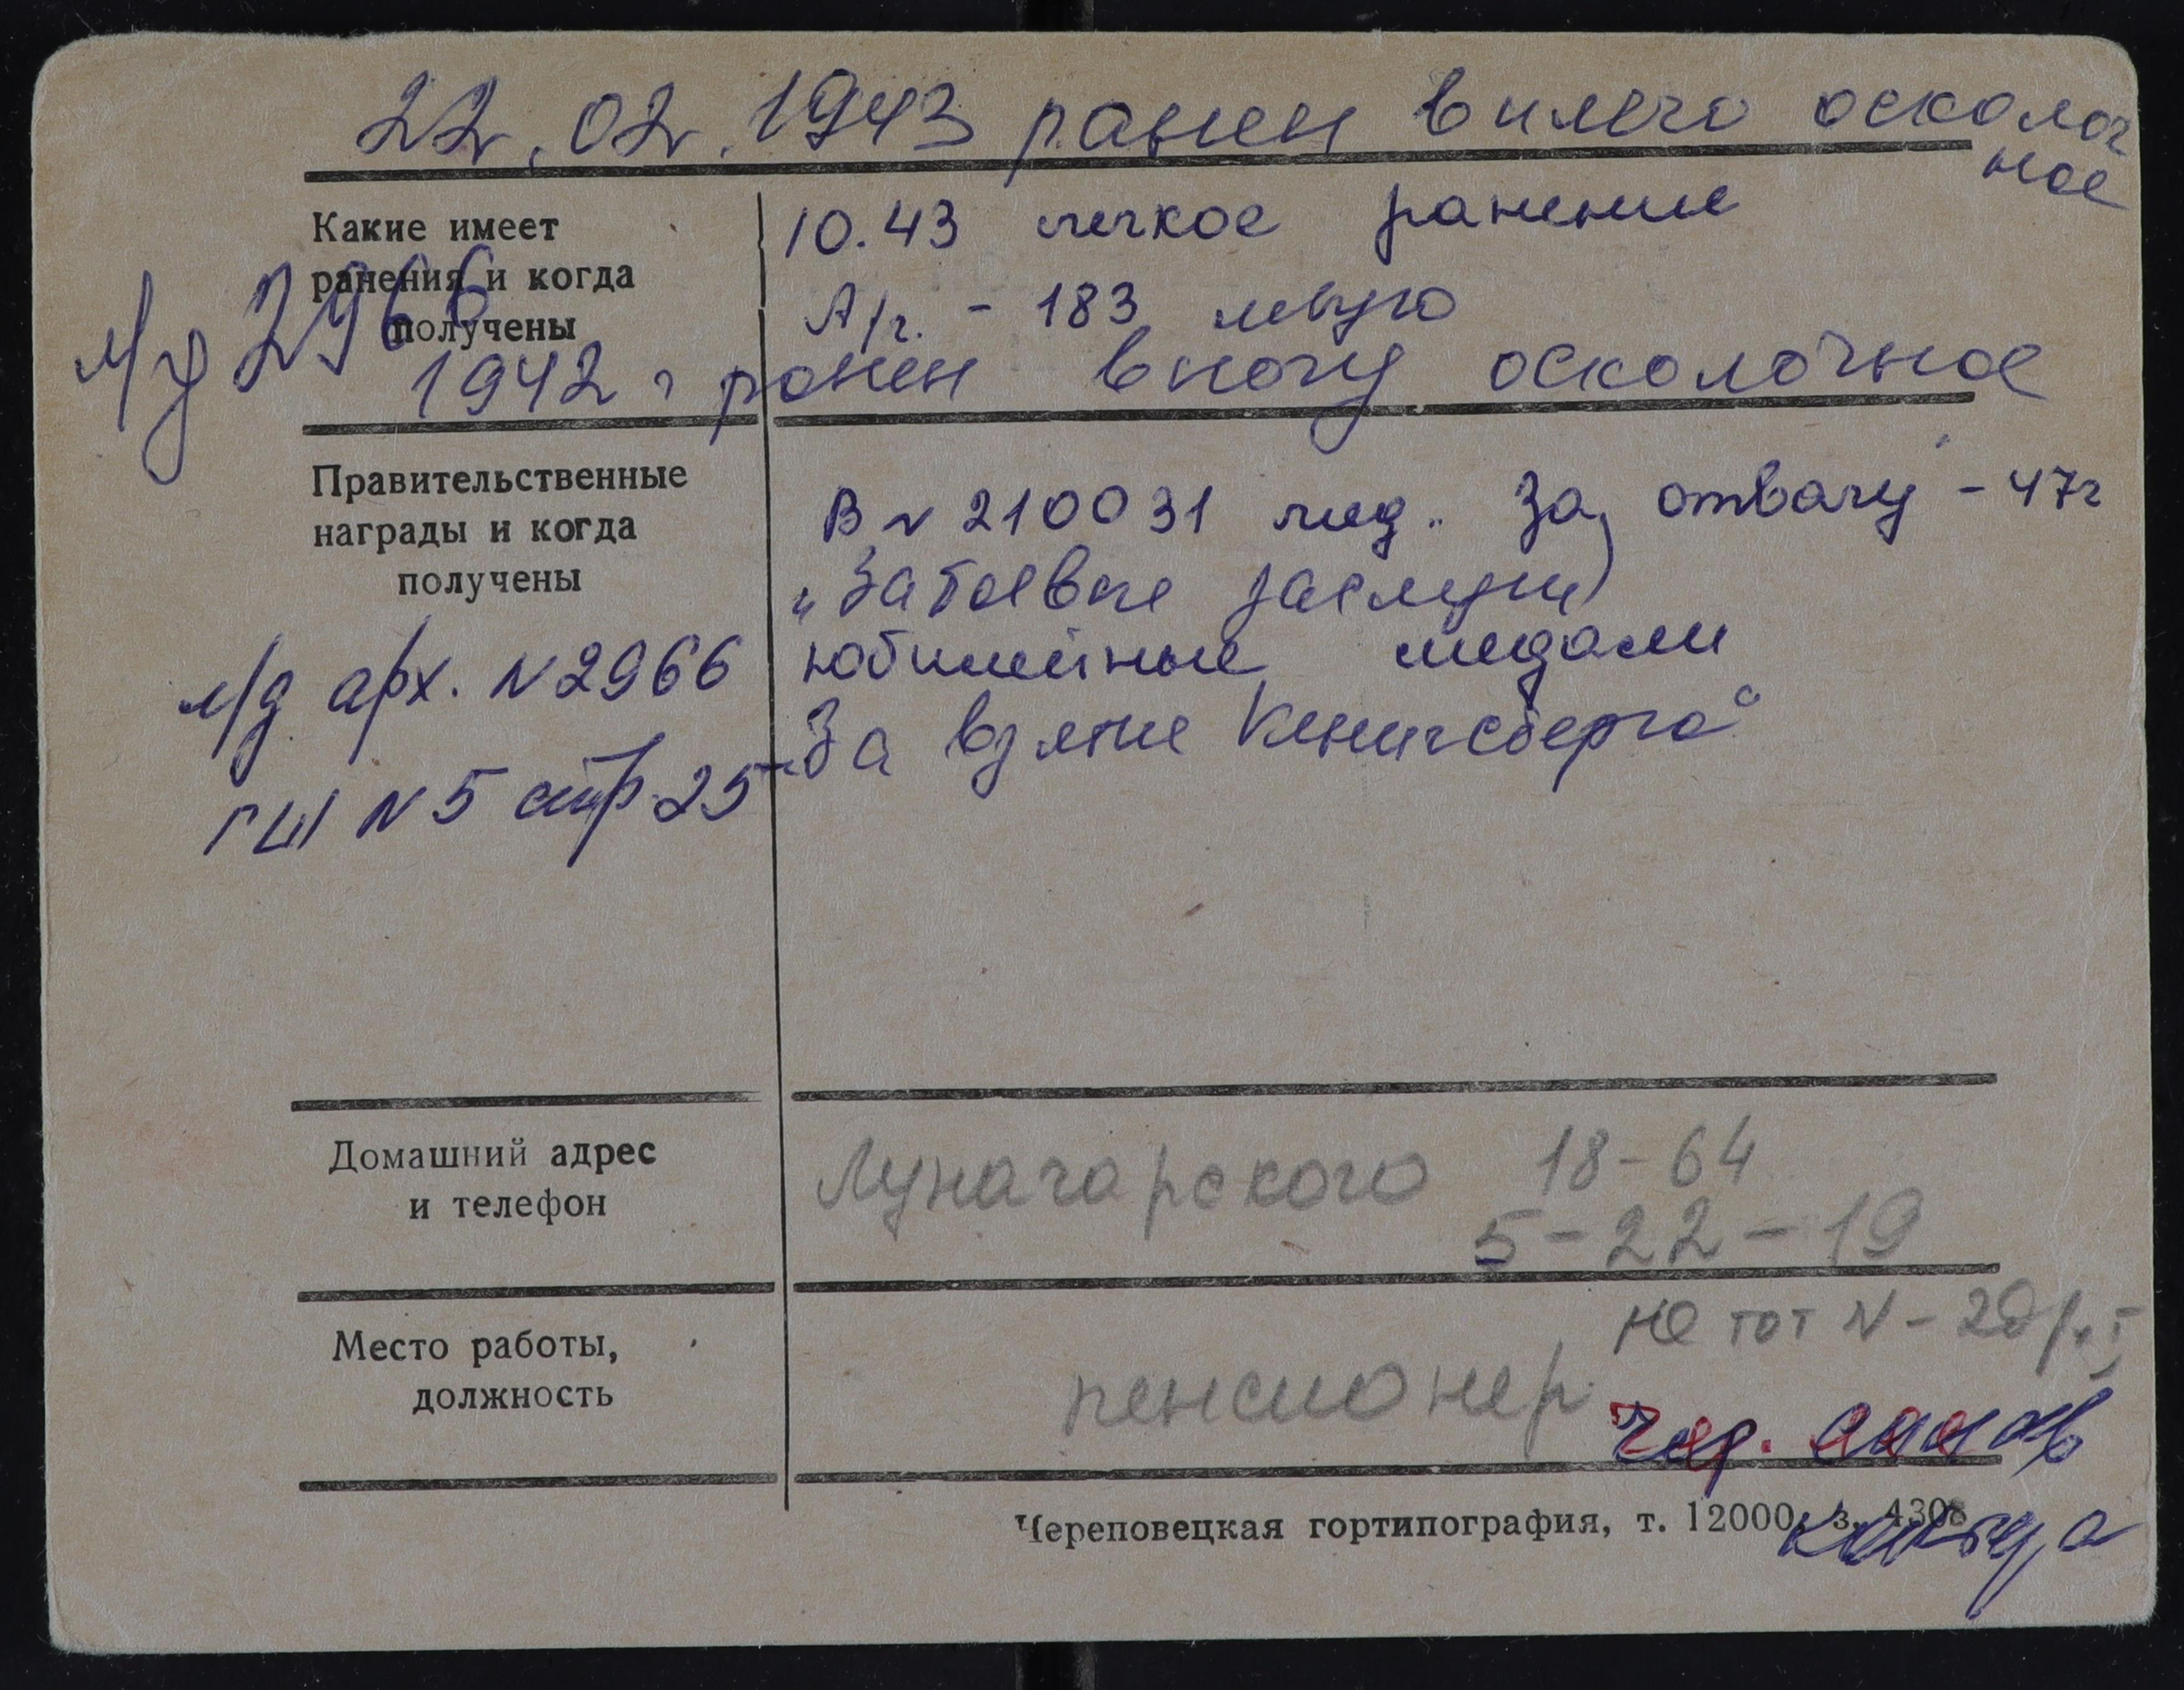 22.02.1943 ранен в плечо осколоч
ное
Какие имеет
ранения и когда
получены
10.43 легкое ранение
А/г. - 183
л/д 2966
1942 г ранен в ногу осколочное
Правительственные
награды и когда
получены
В N 210031 мед. За отвагу - 47г
"За боевые заслуги"
юбилейные медали
За взятие Кенигсберга"
л/д арх. N 2966
ГШ N 5 стр 25
Домашний адрес
и телефон
Луначарского 18-64
5-22-19
Место работы,
должность
не тот N -
пенсионер
Череповецкая гортипография, т. 12000, з. 4308